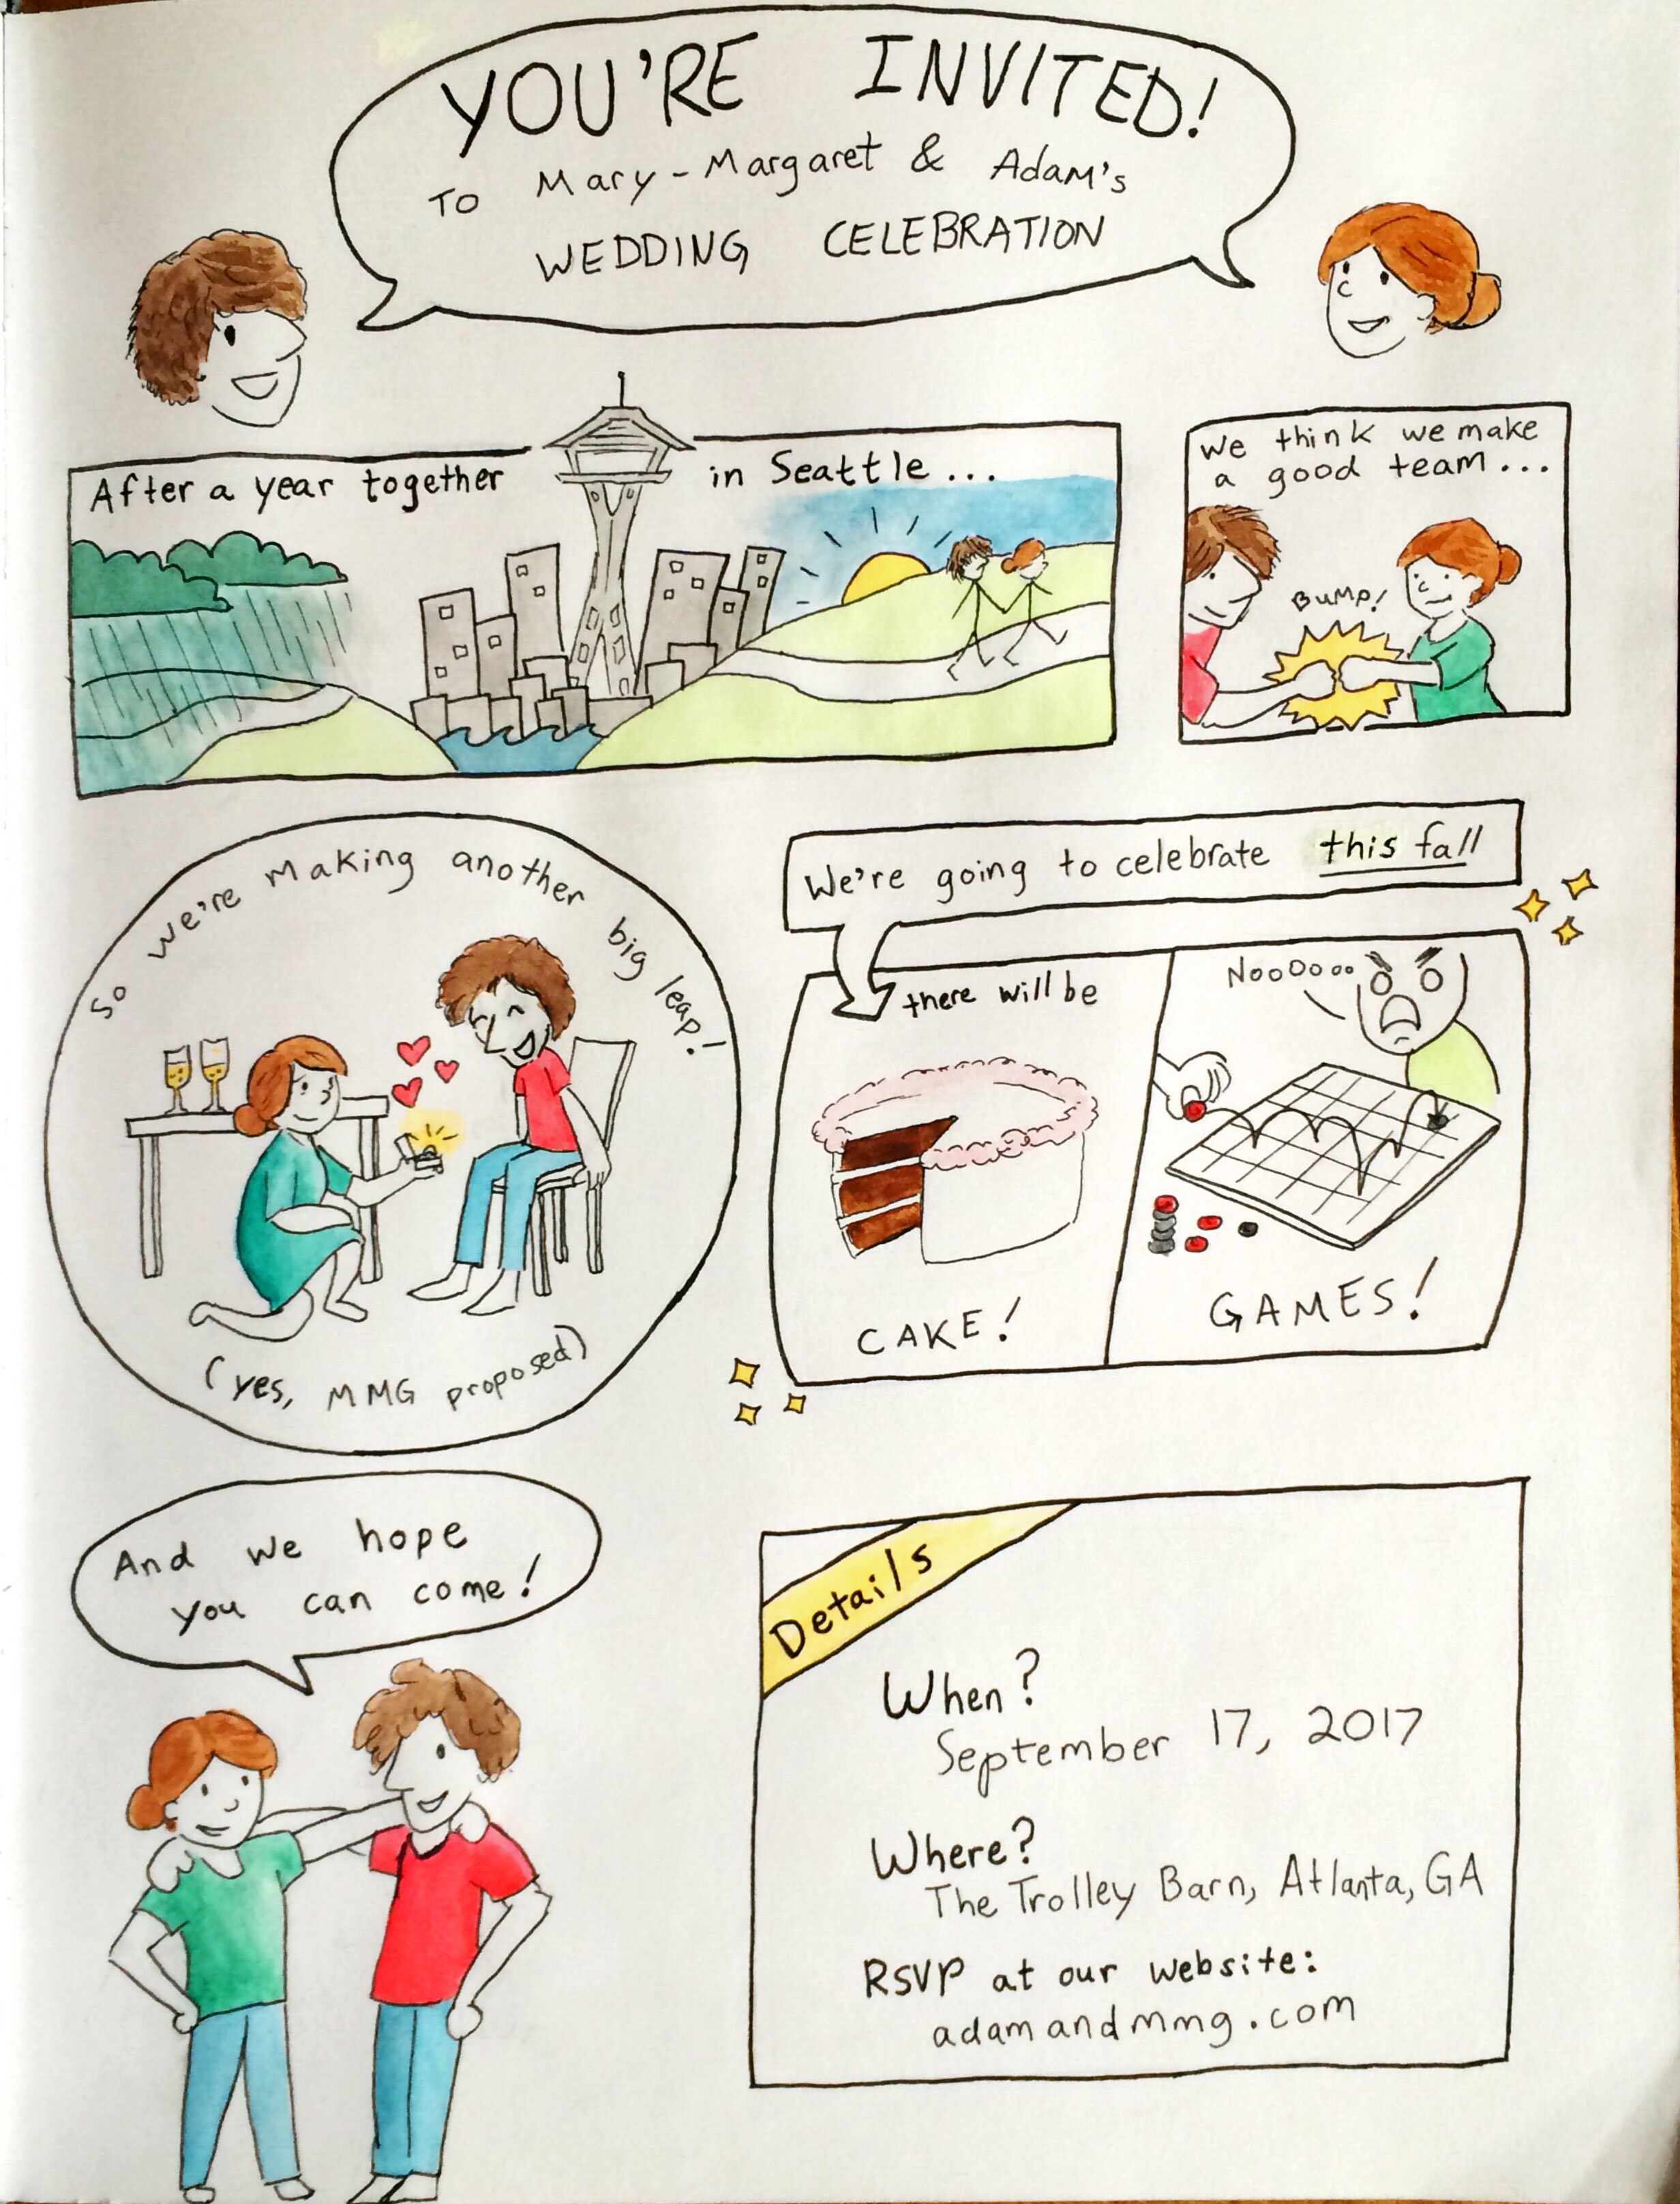 YOU'RE INVITED!
TO Mary-Margaret & Adam's
WEDDING CELEBRATION
After a year together in Seattle...
We think we make
a good team...
BUMP!
So we're making another big leap!
(yes, MMG proposed)
We're going to celebrate this fall
there will be
CAKE!
NooOooo
GAMES!
And we hope
you can come!
Details
When?
September 17, 2017
Where?
The Trolley Barn, Atlanta, GA
RSVP at our website:
adamandmmg.com